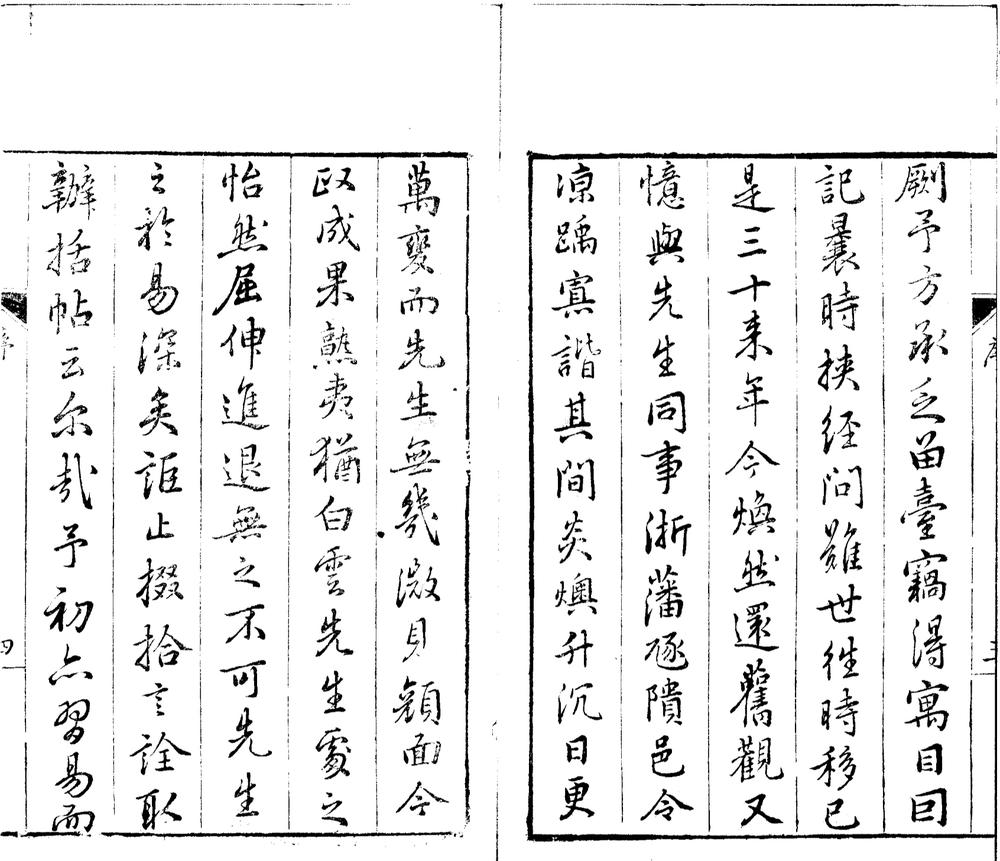 劂予方承乏留臺竊得寓目囙
記曩時挾経問難世往時移已
是三十来年今煥然還舊觀又
憶與先生同事浙藩豗隤邑令
凉踽寘諧其間炎燠升沉日更
萬變而先生無幾微見顔面今
政成果蓺夷猶白雲先生處之
怡然屈伸進退無之不可先生
之於易深矣詎止掇拾言詮取
辦括帖云尔㢤予初亦習易而
序
三
四